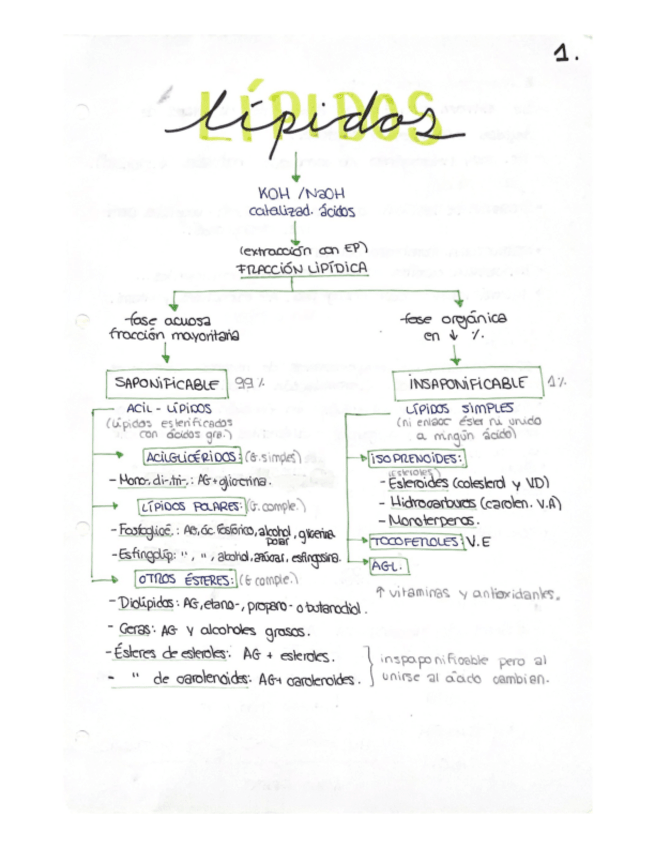 1.
LÍPIDOS
lípidos
KOH / NaOH
catalizad. ácidos
(extracción con EP)
FRACCIÓN LIPÍDICA
fase acuosa
fracción mayoritaria
SAPONIFICABLE 99%
ACIL-LÍPIDOS
(Lípidos esterificados
con ácidos gra.)
ACILGLICÉRIDOS: (É.simples)
- Mono-, di-, tri-.: AG+glicerina.
LÍPIDOS POLARES: (É.comple.)
- Fosfoglicé.: AG, ác. fosfórico, alcohol polar, glicerina
- Esfingolíp: ", ", alcohol, azúcar, esfingosina.
OTROS ÉSTERES: (É comple.)
- Diolípidos: AG, etano-, propano- o butanodiol.
- Ceras: AG y alcoholes grasos.
- Ésteres de esteroles: AG + esteroles.
- " de carotenoides: AG+ carotenoides.
inspaponificable pero al
unirse al ácido cambian.
fase orgánica
en ↓ %.
INSAPONIFICABLE 1%
LÍPIDOS SIMPLES
(ni enlace éster ni unido
a ningún ácido)
ISOPRENOIDES:
(Esteroles)
- Esteroides (colesterol y VD)
- Hidrocarburos (caroten. V.A)
- Monoterpenos.
TOCOFEROLES: V.E
AGL.
↑ vitaminas y antioxidantes.